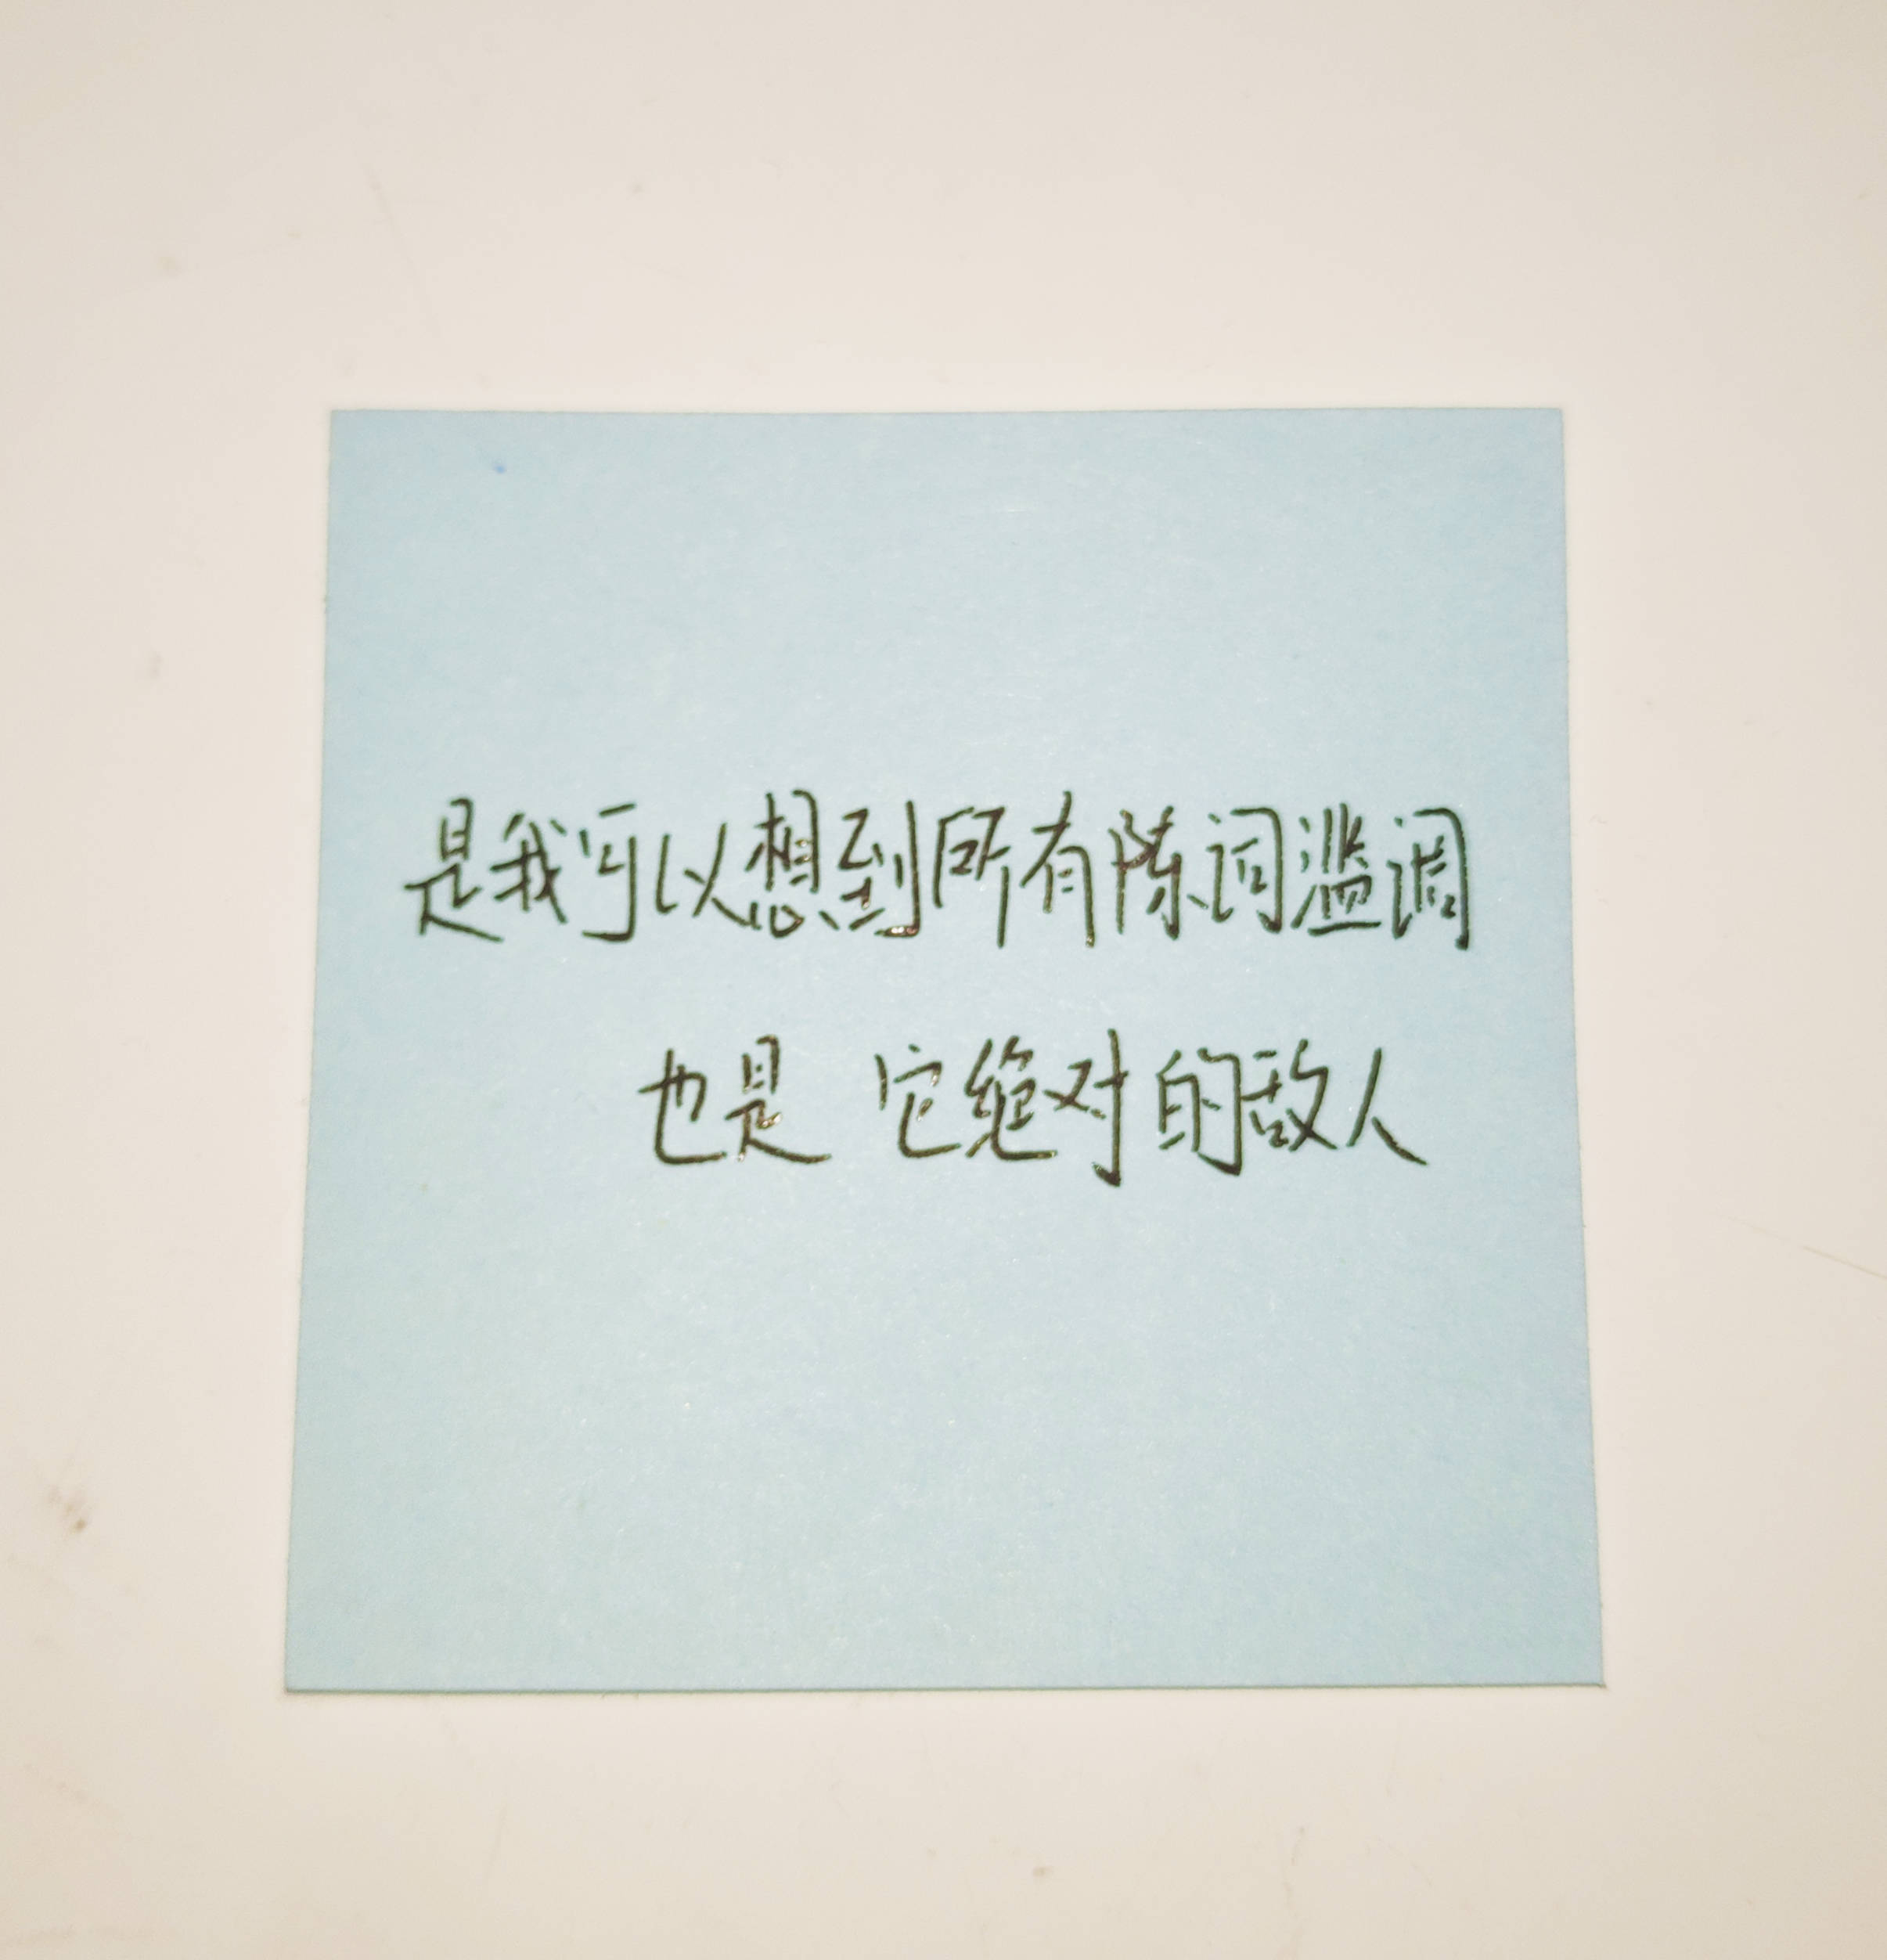 是我可以想到所有陈词滥调
也是 它绝对的敌人